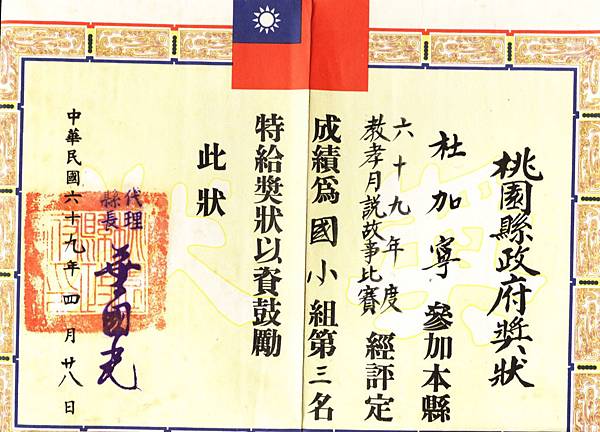 桃園縣政府獎狀
杜加寧參加本縣
六十九年度
教孝月説故事比賽
經評定
成績爲國小組第三名
特給獎狀以資鼓勵
此狀
代理
縣長
葉國光
中華民國六十九年四月廿八日